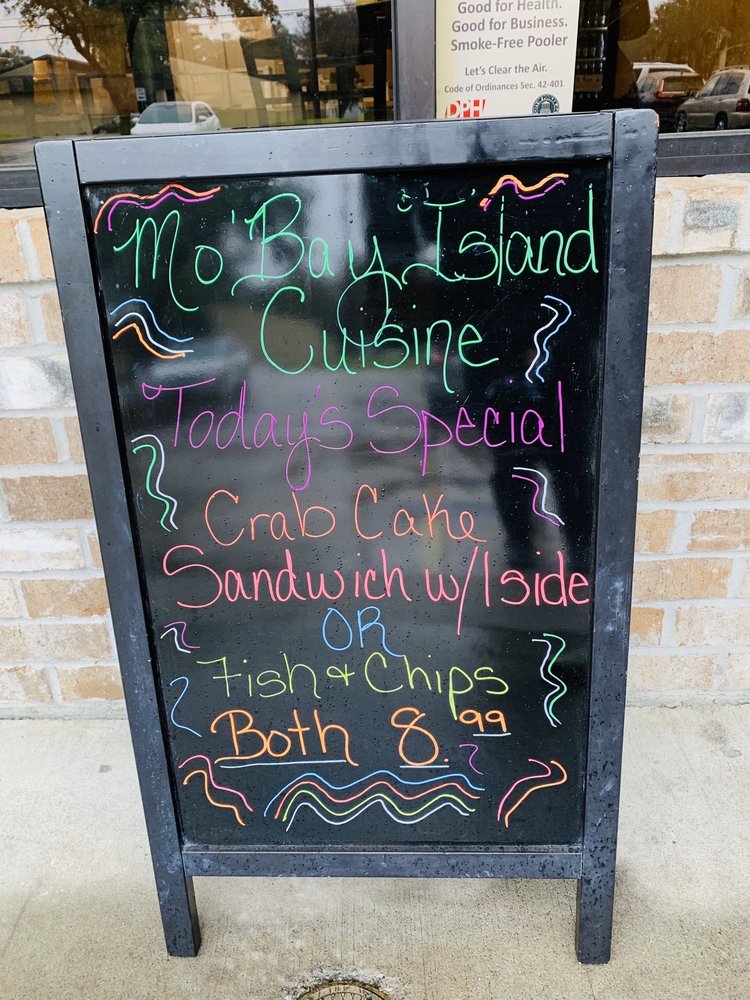 Good for Health.
Good for Business.
Smoke-Free Pooler
Let's Clear the Air.
Code of Ordinances Sec. 42-401
DPH
Mo'Bay "Island
Cuisine
Today's Special
Crab Cake
Sandwich w/1side
OR
Fish & Chips
Both 8.99